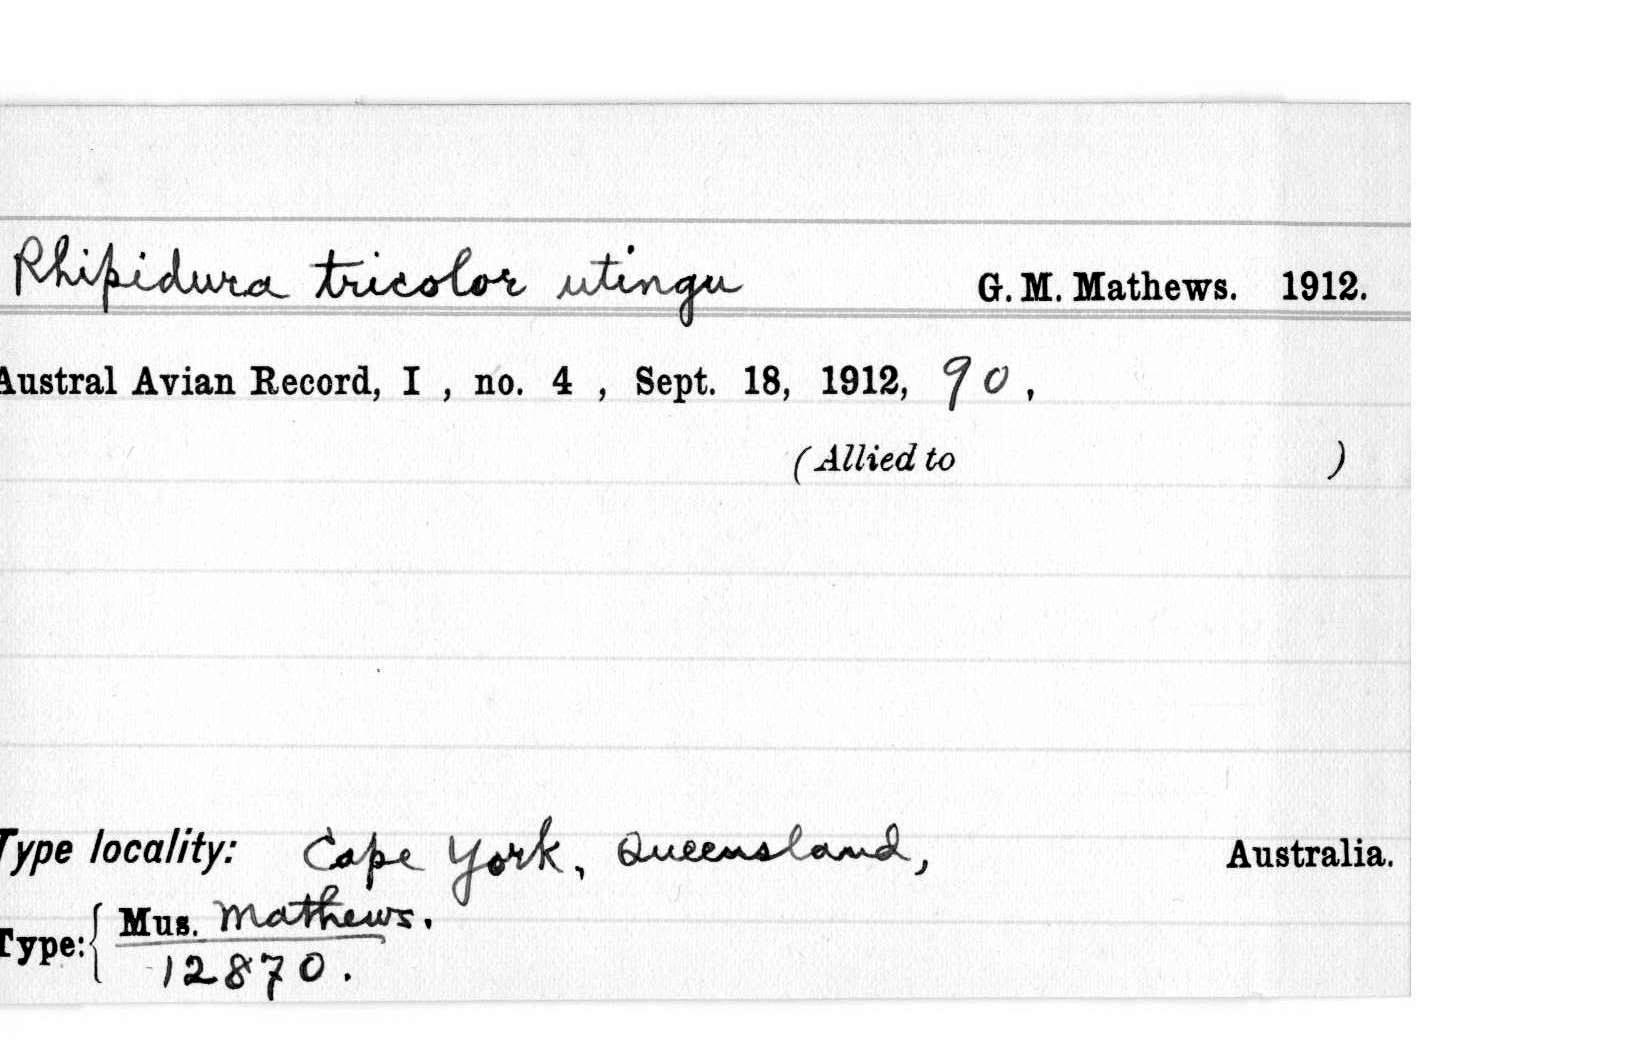 Rhipidura tricolor utingu G. M. Mathews. 1912.
Austral Avian Record, I , no. 4 , Sept. 18, 1912, 90,
(Allied to )
Type locality: Cape York, Queensland, Australia.
Type: { Mus. Mathews.
12870.